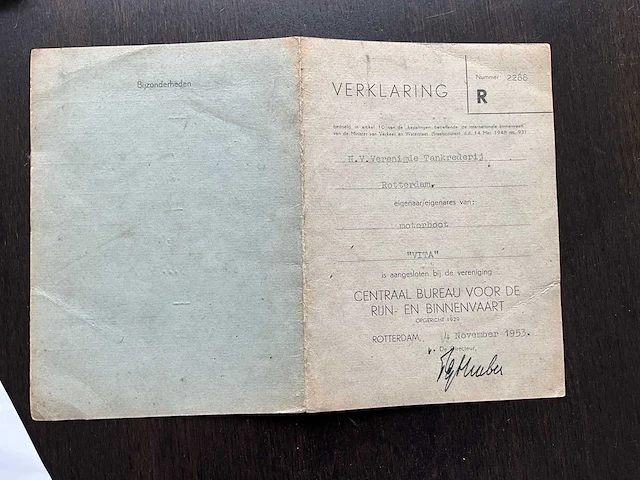 Bijzonderheden
VERKLARING
Nummer 2288
R
bedoeld in artikel 10 van de bepalingen betreffende de internationale binnenvaart
van de Minister van Verkeer en Waterstaat (Staatscourant d.d. 14 Mei 1948 no. 93)
N.V.Verenigde Tankrederij
Rotterdam.
eigenaar/eigenares van:
motorboot
"VITA"
is aangesloten bij de vereniging
CENTRAAL BUREAU VOOR DE
RIJN- EN BINNENVAART
OPGERICHT 1929
ROTTERDAM, 4 November 1953.
De Directeur,